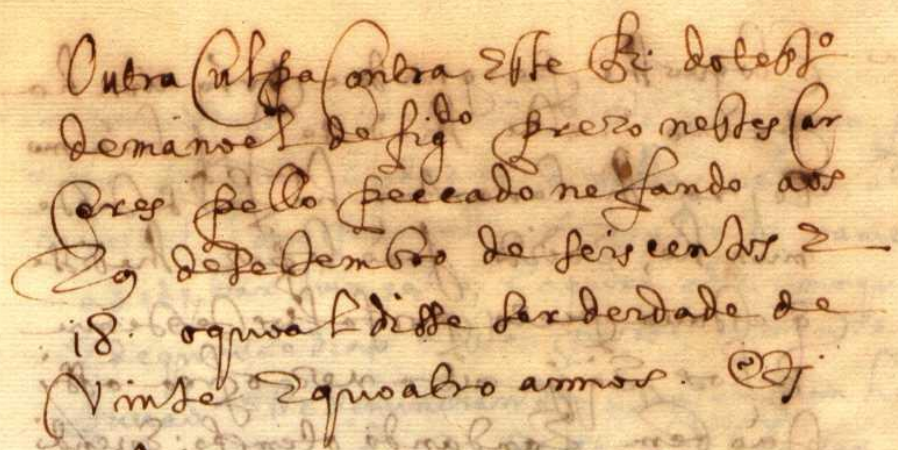 Outra Culpa Contra este Rº do test.º
de manoel de fig.do prezo nestes Car
ceres pello peccado nefando aos
29 de Setembro de seis centos e
18. o quoal disse ser de idade de
Vinte e quoatro annos.